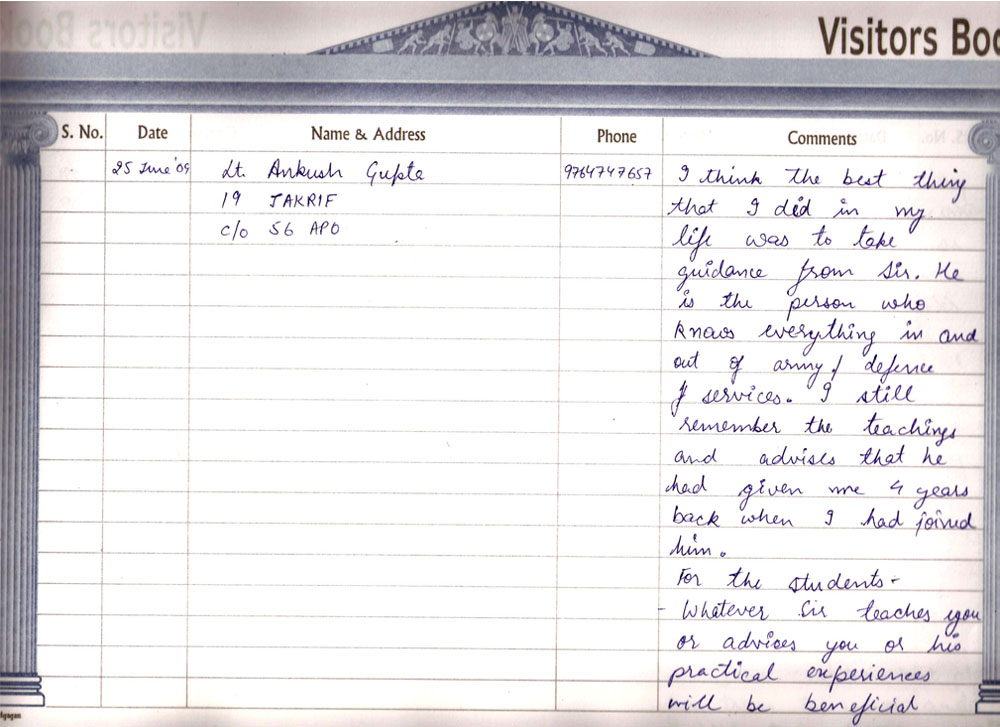 Visitors Boo
S. No. Date Name & Address Phone Comments
25 June '09 Lt. Ankush Gupta 9764747657 I think the best thing
19 JAKRIF that I did in my
c/o 56 APO life was to take
guidance from Sir. He
is the person who
knows everything in and
out of army / defence
services. I still
remember the teachings
and advises that he
had given me 4 years
back when I had joined
him.
For the students -
- Whatever Sir teaches you
or advices you or his
practical experiences
will be beneficial